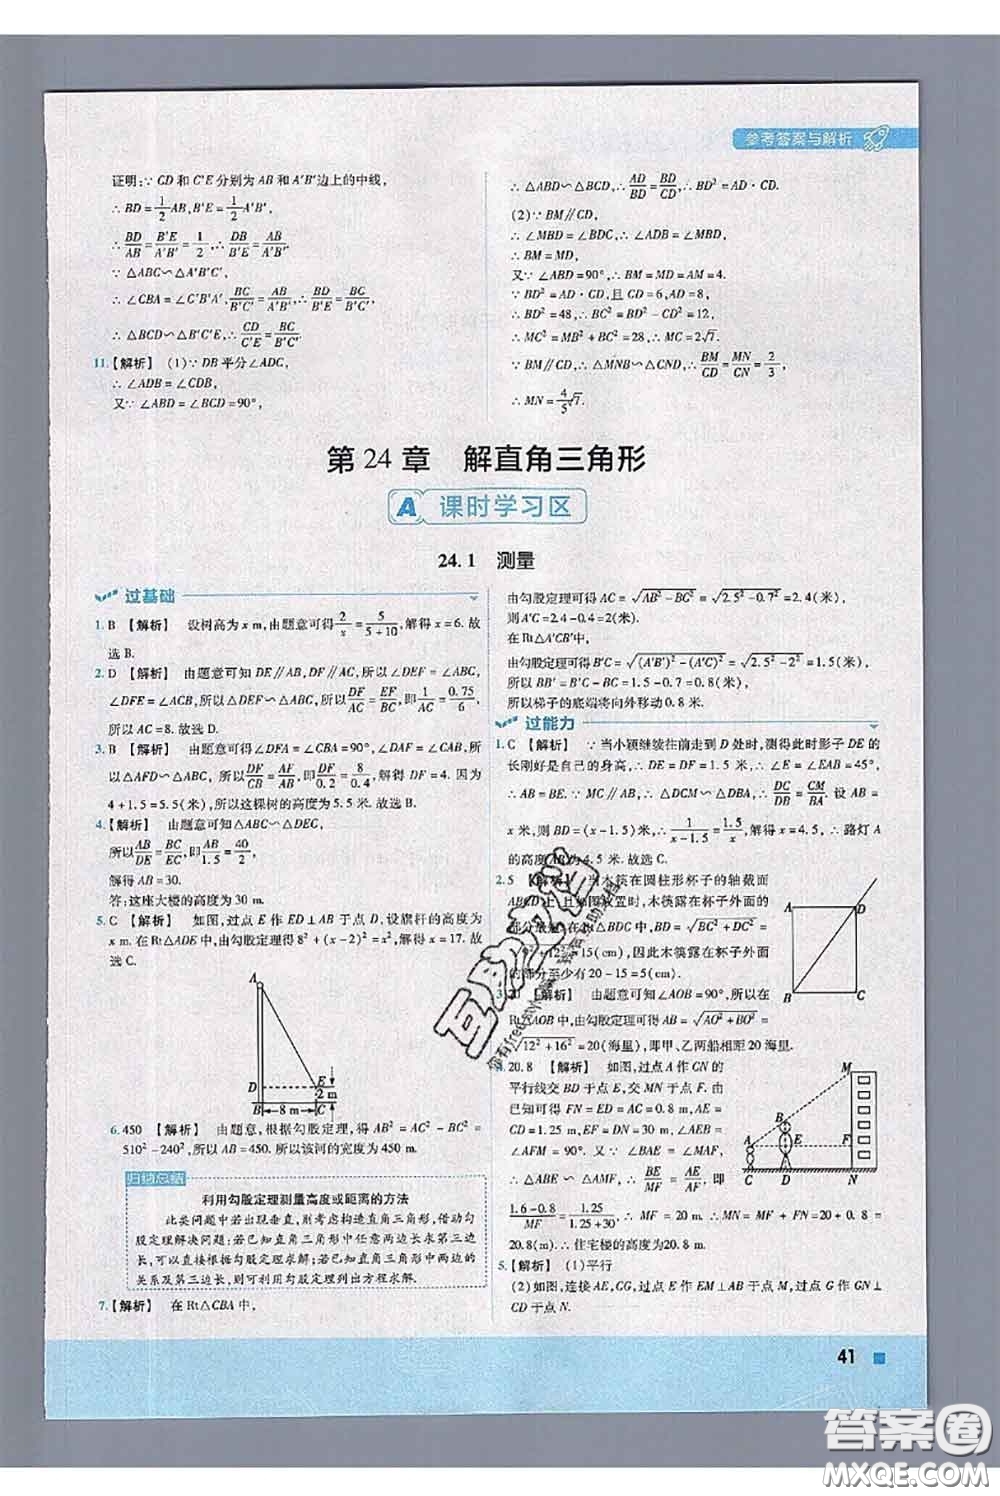 参考答案与解析
证明:∵CD和C'E分别为AB和A'B'边上的中线,
∴BD=1/2AB,B'E=1/2A'B',
∴BD/AB=B'E/A'B'=1/2,∴DB/B'E=AB/A'B'.
∵△ABC∽△A'B'C',
∴∠CBA=∠C'B'A',BC/B'C'=AB/A'B',
∴△BCD∽△B'C'E,∴CD/C'E=BC/B'C'.
11.【解析】 (1)∵DB平分∠ADC,
∴∠ADB=∠CDB,
又∵∠ABD=∠BCD=90°,
∴△ABD∽△BCD,∴AD/BD=BD/CD,∴BD²=AD·CD.
(2)∵BM∥CD,
∴∠MBD=∠BDC,∴∠ADB=∠MBD,
∴BM=MD,
又∵∠ABD=90°,∴MD=AM=4.
∵BD²=AD·CD,且CD=6,AD=8,
∴BD²=48,∴BC²=BD²-CD²=12,
∴MC²=MB²+BC²=28,∴MC=2√7.
∵BM∥CD,∴△MNB∽△CND,∴BM/CD=MN/CN=2/3,
∴MN=4/5√7.
第24章 解直角三角形
A 课时学习区
24.1 测量
过基础
1.B 【解析】 设树高为x m,由题意可得2/x=5/(5+10),解得x=6.故
选B.
2.D 【解析】 由题意可知DE∥AB,DF∥AC,所以∠DEF=∠ABC,
∠DFE=∠ACB,所以△DEF∽△ABC,所以DF/AC=EF/BC,即1/AC=0.75/6,
所以AC=8.故选D.
3.B 【解析】 由题意可得∠DFA=∠CBA=90°,∠DAF=∠CAB,所
以△AFD∽△ABC,所以DF/CB=AF/AB,即DF/0.2=8/0.4,解得DF=4.因为
4+1.5=5.5(米),所以这棵树的高度为5.5米.故选B.
4.【解析】 由题意可知△ABC∽△DEC,
所以AB/DE=BC/EC,即AB/1.5=40/2,
解得AB=30.
答:这座大楼的高度为30 m.
5.C 【解析】 如图,过点E作ED⊥AB于点D,设旗杆的高度为
x m.在Rt△ADE中,由勾股定理得8²+(x-2)²=x²,解得x=17.故
选C.
A
D
E
2 m
B
8 m
C
6.450 【解析】 由题意,根据勾股定理,得AB²=AC²-BC²=
510²-240²,所以AB=450.所以该河的宽度为450 m.
归纳总结
利用勾股定理测量高度或距离的方法
此类问题中若出现垂直,则考虑构造直角三角形,借助勾
股定理解决问题:若已知直角三角形中任意两边求第三边
长,可以直接根据勾股定理求解;若已知直角三角形中两边的
关系及第三边长,则可利用勾股定理列出方程求解.
7.【解析】 在Rt△CBA中,
由勾股定理可得AC=√(AB²-BC²)=√(2.5²-0.7²)=2.4(米),
则A'C=2.4-0.4=2(米).
在Rt△A'CB'中,
由勾股定理可得B'C=√((A'B')²-(A'C)²)=√(2.5²-2²)=1.5(米),
所以BB'=B'C-BC=1.5-0.7=0.8(米),
所以梯子的底端将向外移动0.8米.
过能力
1.C 【解析】 ∵当小颖继续往前走到D处时,测得此时影子DE的
长刚好是自己的身高,∴DE=DF=1.5米,∴∠E=∠EAB=45°,
∴AB=BE.∵MC∥AB,∴△DCM∽△DBA,∴DC/DB=CM/BA.设AB=
x米,则BD=(x-1.5)米,∴1/(x-1.5)=1.5/x,解得x=4.5,∴路灯A
的高度AB为4.5米.故选C.
2.5 【解析】 当木筷在圆柱形杯子的轴截面
ABCD上,且如图放置时,木筷露在杯子外面的
部分最短,在Rt△BDC中,BD=√(BC²+DC²)=
√(9²+12²)=15(cm),因此木筷露在杯子外面
的部分至少有20-15=5(cm).
A
D
B
C
3.20 【解析】 由题意可知∠AOB=90°,所以在
Rt△AOB中,由勾股定理可得AB=√(AO²+BO²)=
√(12²+16²)=20(海里),即甲、乙两船相距20海里.
4.20.8 【解析】 如图,过点A作CN的
平行线交BD于点E,交MN于点F,由
已知可得FN=ED=AC=0.8 m,AE=
CD=1.25 m,EF=DN=30 m,∠AEB=
∠AFM=90°.又∵∠BAE=∠MAF,
∴△ABE∽△AMF,∴BE/MF=AE/AF,即
(1.6-0.8)/MF=1.25/(1.25+30),∴MF=20 m.∴MN=MF+FN=20+0.8=
20.8(m).∴住宅楼的高度为20.8 m.
M
B
A
E
F
C
D
N
5.【解析】 (1)平行
(2)如图,连接AE,CG,过点E作EM⊥AB于点M,过点G作GN⊥
CD于点N.
41
答案圈
MXQE.COM